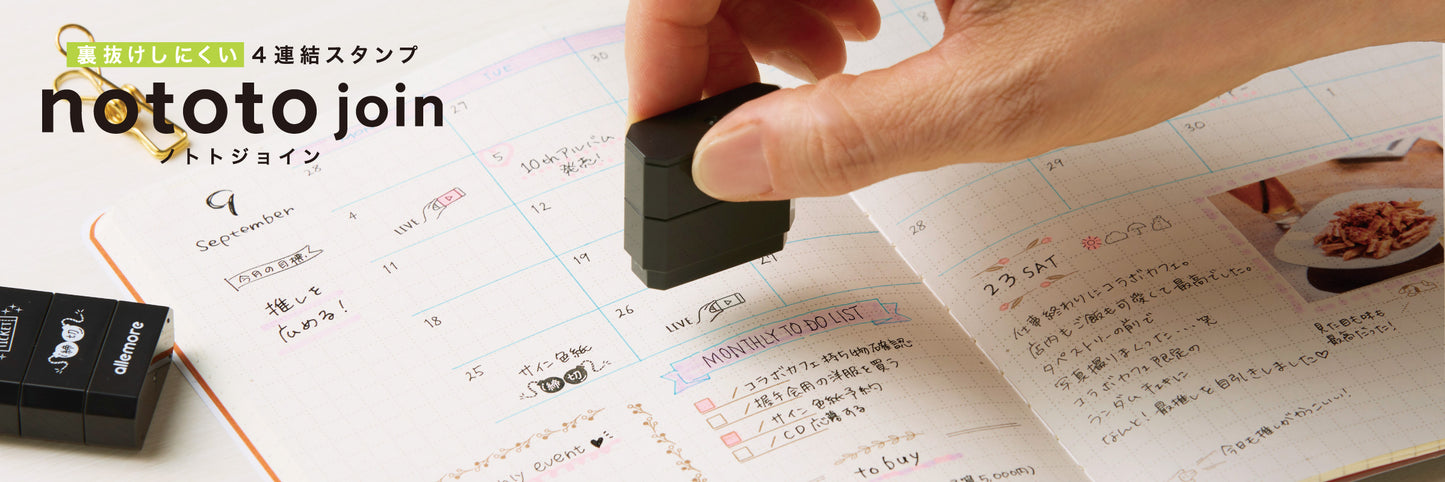 裏抜けしにくい 4連結スタンプ
nototo join
ノトトジョイン
9
September
今月の目標
推しを
広める！
TUE
28
27
30
4
5
10thアルバム
発売！
LIVE
11
12
18
19
25
26
27
サイン色紙
締切
LIVE
MONTHLY TO DO LIST
コラボカフェ持ち物確認
握手会用の洋服を買う
サイン色紙予約
CD応募する
event
to buy
5,000円)
8
1
30
29
28
23 SAT
仕事終わりにコラボカフェ。
店内もご飯も可愛くて最高でした。
タペストリーの前で
写真撮りまくった…笑
コラボカフェ限定の
ランダムチェキに
なんと！最推しを自引きしました♡
見た目も味も
最高だった！
今日も推しがかっこいい！
TICKET
締切
allemore